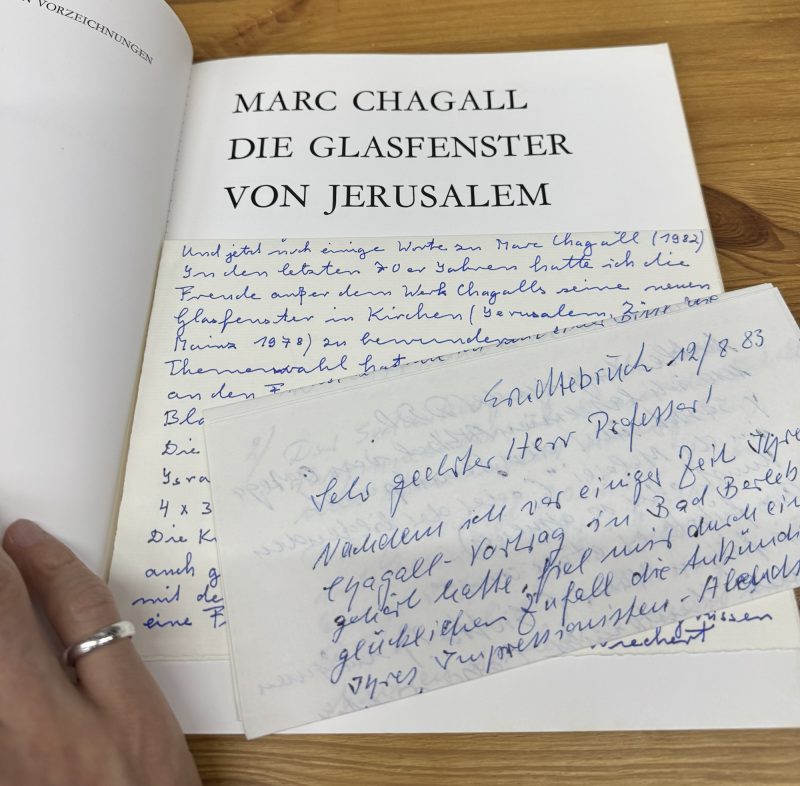 N VORZEICHNUNGEN
MARC CHAGALL
DIE GLASFENSTER
VON JERUSALEM
Und jetzt noch einige Worte zu Marc Chagall (1982)
In den letzten 70er Jahren hatte ich die
Freude außer dem Werk Chagalls seine neuen
Glasfenster in Kirchen (Jerusalem,
Mainz 1978) zu bewundern
Themenwahl hat
an den
Die
4 x 3
Die K
auch g
mit de
eine F
Erndtebrück 12/8.83
Sehr geehrter Herr Professor!
Nachdem ich vor einiger Zeit Ihren
Chagall-Vortrag in Bad Berleb
gehört hatte, fiel mir durch ein
glücklichen Zufall die Ankündi
Ihres Impressionisten-Abends